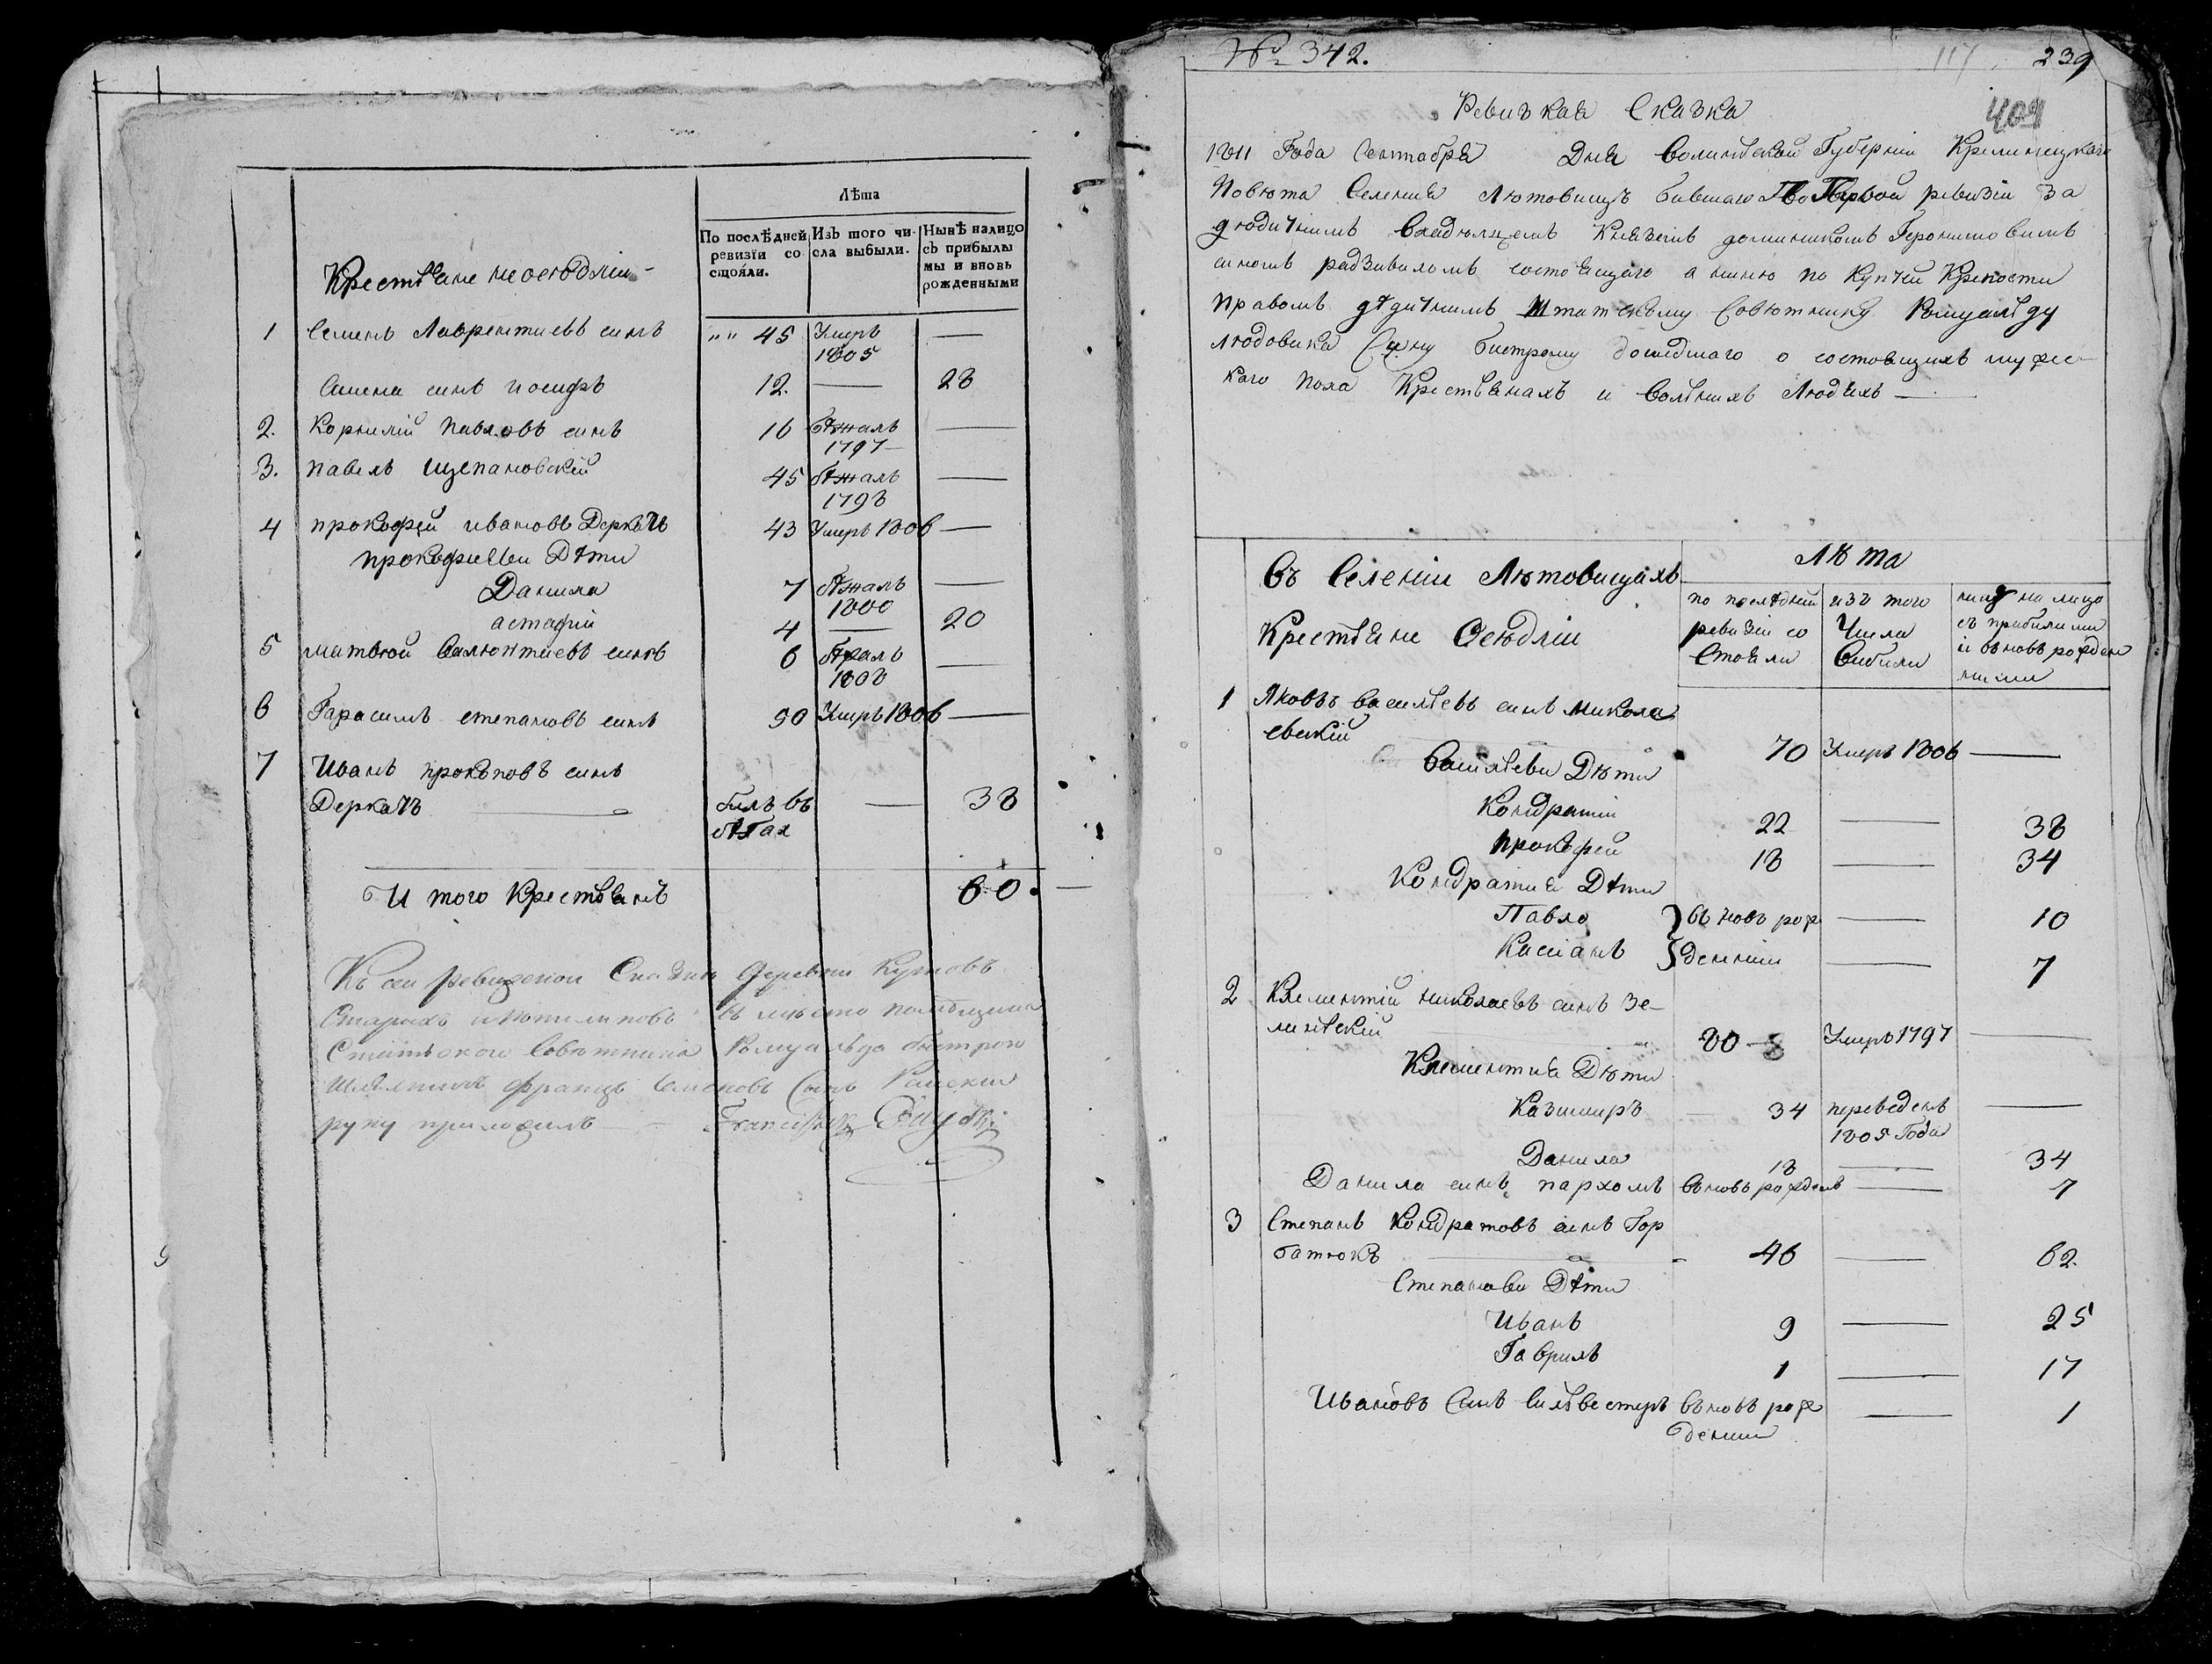 Лѣта
По послѣдней ревизїи со стояли.
Изъ того чи- сла выбыли.
Нынѣ налицо съ прибылы ми и вновь рожденными
Крестьяне неосѣдліи
1 Семенъ Лаврентиевъ синъ 45 Умеръ 1805 —
Симена синъ иосифъ 12. — 28
2. Корнилій Павловъ синъ 16 бѣжалъ 1797 —
3. павелъ щепановскій 45 бѣжалъ 1798 —
4 прокофей ивановъ Деркачъ 43 Умеръ 1806 —
прокофиеви Дѣти
Данила 7 бѣжалъ 1800 —
астафій 4 — 20
5 матвѣй Валентиевъ синъ 6 бѣжалъ 1808 —
6 Гарасимъ степановъ синъ 50 Умеръ 1806 —
7 Иванъ прокоповъ синъ
Деркачъ билъ въ бѣгах — 38
И того Крестьянъ 60.
Къ сей ревизской Сказки Деревни
Старыхъ въ мѣсто помѣщика
Статского Совѣтника Ромуальда быстрого
Шляхтичъ францъ Синъ
руку приложилъ
№ 342.
117 239
409
Ревизкая Сказка
1811 Года Сентября Дня Волинской Губерніи Кременецкаго
Повѣта Селения Лютовищъ бившаго По Первой ревизіи за
дѣдичнимъ владѣльцемъ Княземъ доминикомъ Геронимовимъ
синомъ радзивиломъ состоящаго а нинѣ по Купчей Крепости
правомъ дѣдичнимъ Штатскому Совѣтнику Ромуалду
людовика Сину бистрому дошедшаго о состоящихъ мужес-
каго пола Крестьянахъ и Волнихъ Людяхъ —
Въ Селеніи Лютовищахъ
Крестьяне Осѣдліи
Лѣта
по послѣдней ревизіи со Стояли
изъ того Числа Вибили
нинѣ на лицо съ прибилими и вновъ рожденними
1 Яковъ васильевъ синъ микола
евский 70 Умеръ 1806 —
Васильеви Дѣти
Кондратій 22 — 38
прокофей 18 — 34
Кондратия Дѣти
Павло } въновъ рож — 10
Касіанъ } денній — 7
2 Клементій николаевъ синъ Зе-
линский 80 Умеръ 1797 —
Клементия Дѣти
Казимиръ 34 переведенъ 1805 Года —
Данила 18 — 34
Данила синъ пархомъ вновъ рожденъ — 7
3 Степанъ Кондратовъ синъ Гор
батюкъ 46 — 62.
Степанови Дѣти
Иванъ 9 — 25
Гаврилъ 1 — 17
Ивановъ Синъ Силвестеръ въновъ рож — 1
денни